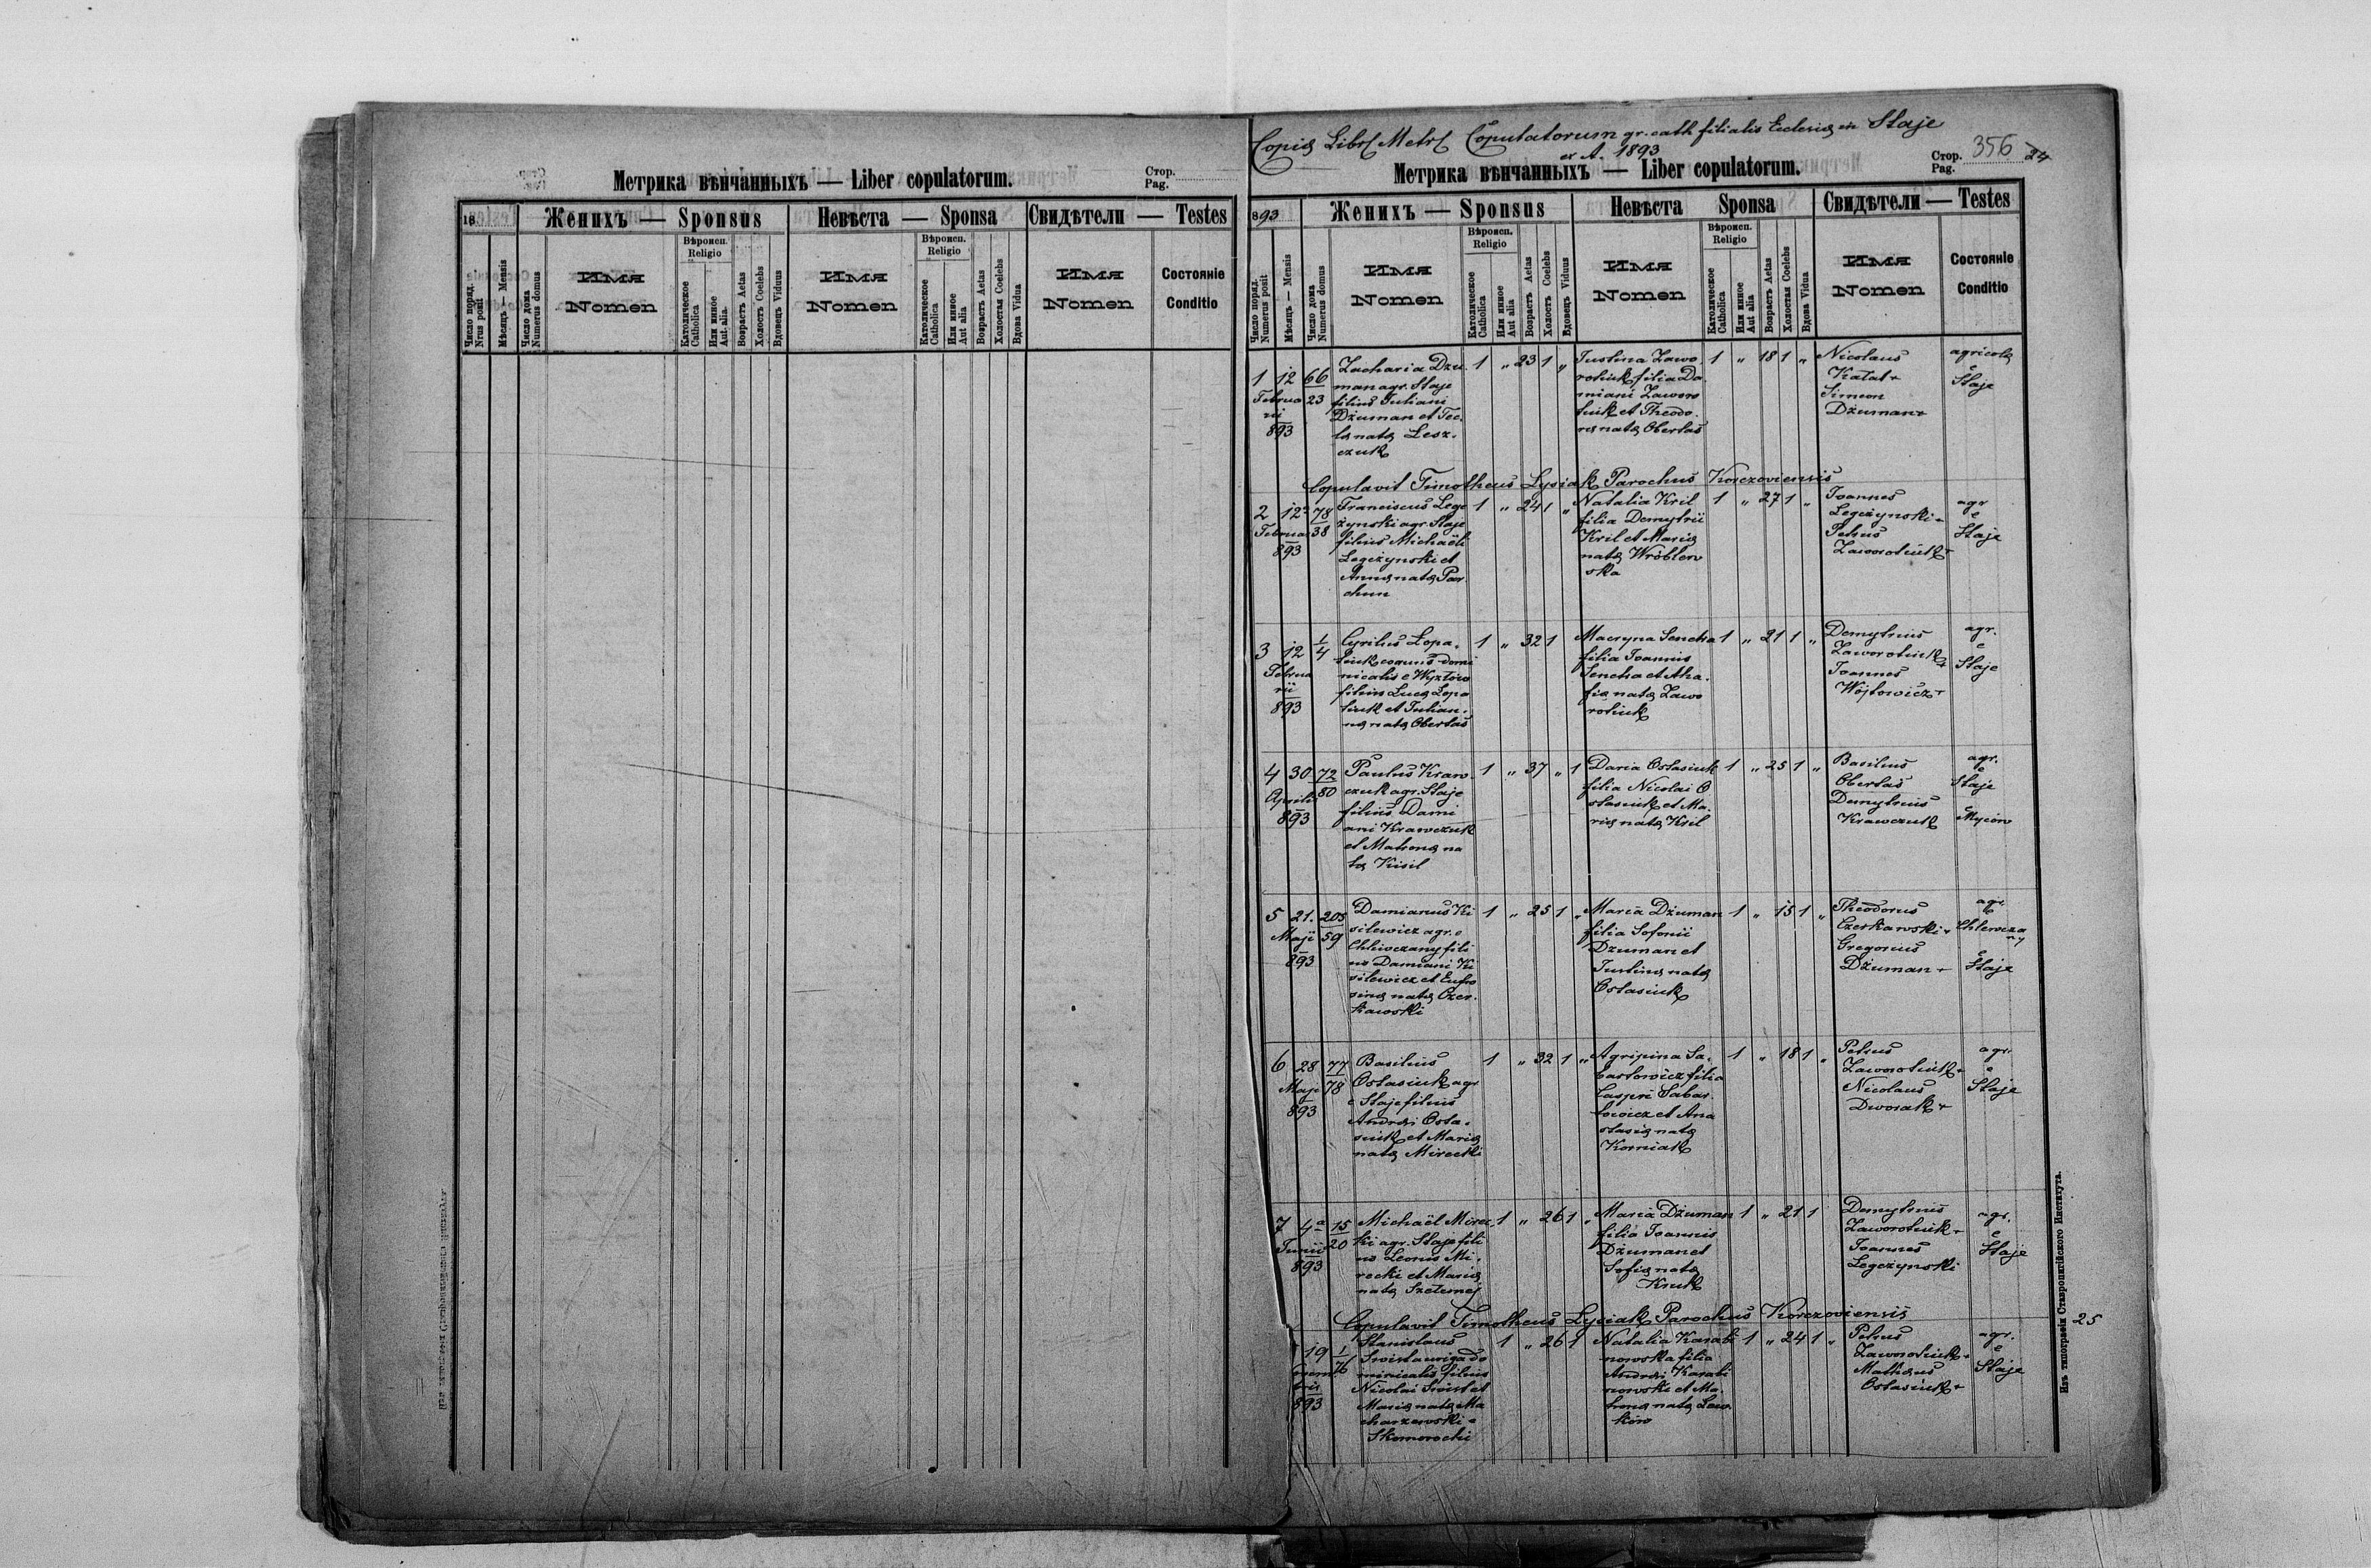 Метрика вѣнчанныхъ — Liber copulatorum.
Стор.
Pag.
18
Женихъ — Sponsus
Невѣста — Sponsa
Свидѣтели — Testes
Число поряд.
Nrus posit
Мѣсяцъ — Mensis
Число дома
Numerus domus
Имя
Nomen
Вѣроисп.
Religio
Католическое
Catholica
Или инное
Aut alia.
Возрастъ Aetas
Холостъ Coelebs
Вдовецъ Viduus
Имя
Nomen
Вѣроисп.
Religio
Католическое
Catholica
Или инное
Aut alia
Возрастъ Aetas
Холостая Coelebs
Вдова Vidua
Имя
Nomen
Состояніе
Conditio
Copia Libri Metr Copulatorum gr. cath filialis Ecclesia in Staje
ex A. 1893
Метрика вѣнчанныхъ — Liber copulatorum.
Стор.
Pag.
356
24
893
Женихъ — Sponsus
Невѣста Sponsa
Свидѣтели — Testes
Число поряд.
Numerus posit
Мѣсяцъ — Mensis
Число дома
Numerus domus
Имя
Nomen
Вѣроисп.
Religio
Католическое
Catholica
Или инное
Aut alia
Возрастъ Aetas
Холостъ Coelebs
Вдовецъ Viduus
Имя
Nomen
Вѣроисп.
Religio
Католическое
Catholica
Или инное
Aut alia
Возрастъ Aetas
Холостая Coelebs
Вдова Vidua
Имя
Nomen
Состояніе
Conditio
1 12 66
Februa 23
rii
893
Zacharia Dżu-
man agr. Staje
filius Iuliani
Dżuman et Tec-
la nata Lesz-
czuk
1 " 23 1 "
Iustina Zawo
rotiuk filia Da-
miani Zaworo
tiuk et Theodo-
ra nata Obertas
1 " 18 1 "
Nicolaus
Kalat +
Simeon
Dżuman +
agricola
e
Staje
Copulavit Timotheus Lysiak Parochus Korczoviensis
2 12 78
Februa 38
893
Franciscus Lege
żynski agr. Staje
filius Michaeli
Legeżynski et
Anna nata Par
chun
1 " 24 1 "
Natalia Kril
filia Demytrii
Kril et Maria
nata Wróblew
ska
1 " 27 1 "
Ioannes
Legeżynski +
Petrus
Zaworotiuk +
agr
e
Staje
3 12 1
4
Februa
rii
893
Cyrilus Łopa-
tiuk domi
nicalis e Wyżłów
filius Luca Łopa
tiuk et Iulian-
na nata Obertas
1 " 32 1
Macryna Sencha
filia Ioannis
Sencha et Aha-
fia nata Zawo
rotiuk
1 " 21 1 "
Demytrius
Zaworotiuk +
Ioannes
Wójtowicz +
agr.
e
Staje
4 30 72
Aprilis 80
893
Paulus Kraw-
czuk agr. Staje
filius Dami
ani Krawczuk
et Matrona na
ta Kisil
1 " 37 " 1
Daria Ostasiuk
filia Nicolai O
stasiuk et Ma-
ria nata Kril
1 " 25 1 "
Basilius
Obertas
Demytrius
Krawczuk
agr.
e
Staje
e
Myców
5 21. 205
Maji 59
893
Damianus Ki
silewicz agr. e
Chliwczany fili
us Damiani Ki
silewicz et Eufro
sina nata Czer-
kawski
1 " 25 1 "
Maria Dżuman
filia Sofonii
Dżuman et
Iustina nata
Ostasiuk
1 " 15 1 "
Theodorus
Czerkawski +
Gregorius
Dżuman +
agr
e
Chlewcza
ny
e
Staje
6 28 77
Maji 78
893
Basilius
Ostasiuk agr
e Staje filius
Andrei Osta-
siuk et Maria
nata Mirecki
1 " 32 1 "
Agripina Sa-
bastowicz filia
Caspri Sabas-
towicz et Ana
stasia nata
Korniak
1 " 18 1 "
Petrus
Zaworotiuk +
Nicolaus
Dworak +
agr.
e
Staje
7 4a 15
Iunii 20
893
Michaël Mirec-
ki agr. Staje fili
us Leonis Mi-
recki et Maria
nata Szetemej
1 " 26 1 "
Maria Dżuman
filia Ioannis
Dżuman et
Sofia nata
Kruk
1 " 21 1
Demytrius
Zaworotiuk +
Ioannes
Legeżynski
agr.
e
Staje
Copulavit Timotheus Lysiak Parochus Korczoviensis
25
19 1
76
bris
893
Stanislaus
Swist auriga do
minicalis filius
Nicolai Swist et
Maria nata Ma
charzewski e
Skomorochi
1 " 26 1
Natalia Karabi
nowska filia
Andrei Karabi
nowski et Ma-
trona nata Law-
ków
1 " 24 1 "
Petrus
Zaworotiuk +
Matheus
Ostasiuk +
agr.
e
Staje
Изъ типографіи Ставропигійского Института.